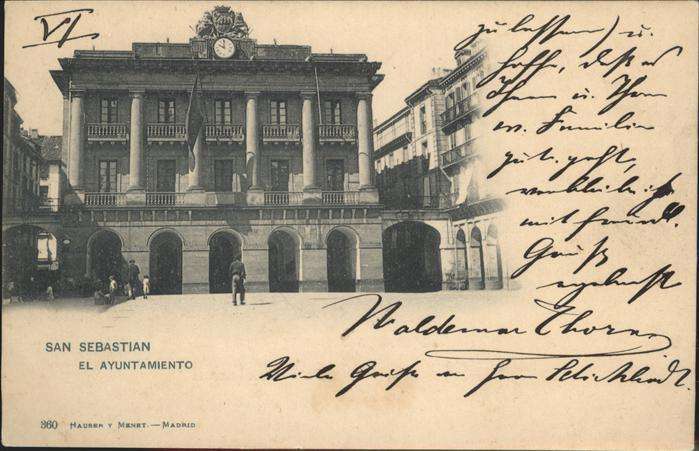 VI
zu lassen) u.
hoffe, daß es
Ihnen u. Ihrer
w. Familie
gut geht,
verbleibe ich
mit freundl.
Gruß
ergebenst
Waldemar Thorn
Viele Grüße an Herrn
SAN SEBASTIAN
EL AYUNTAMIENTO
360 HAUSER Y MENET.—MADRID